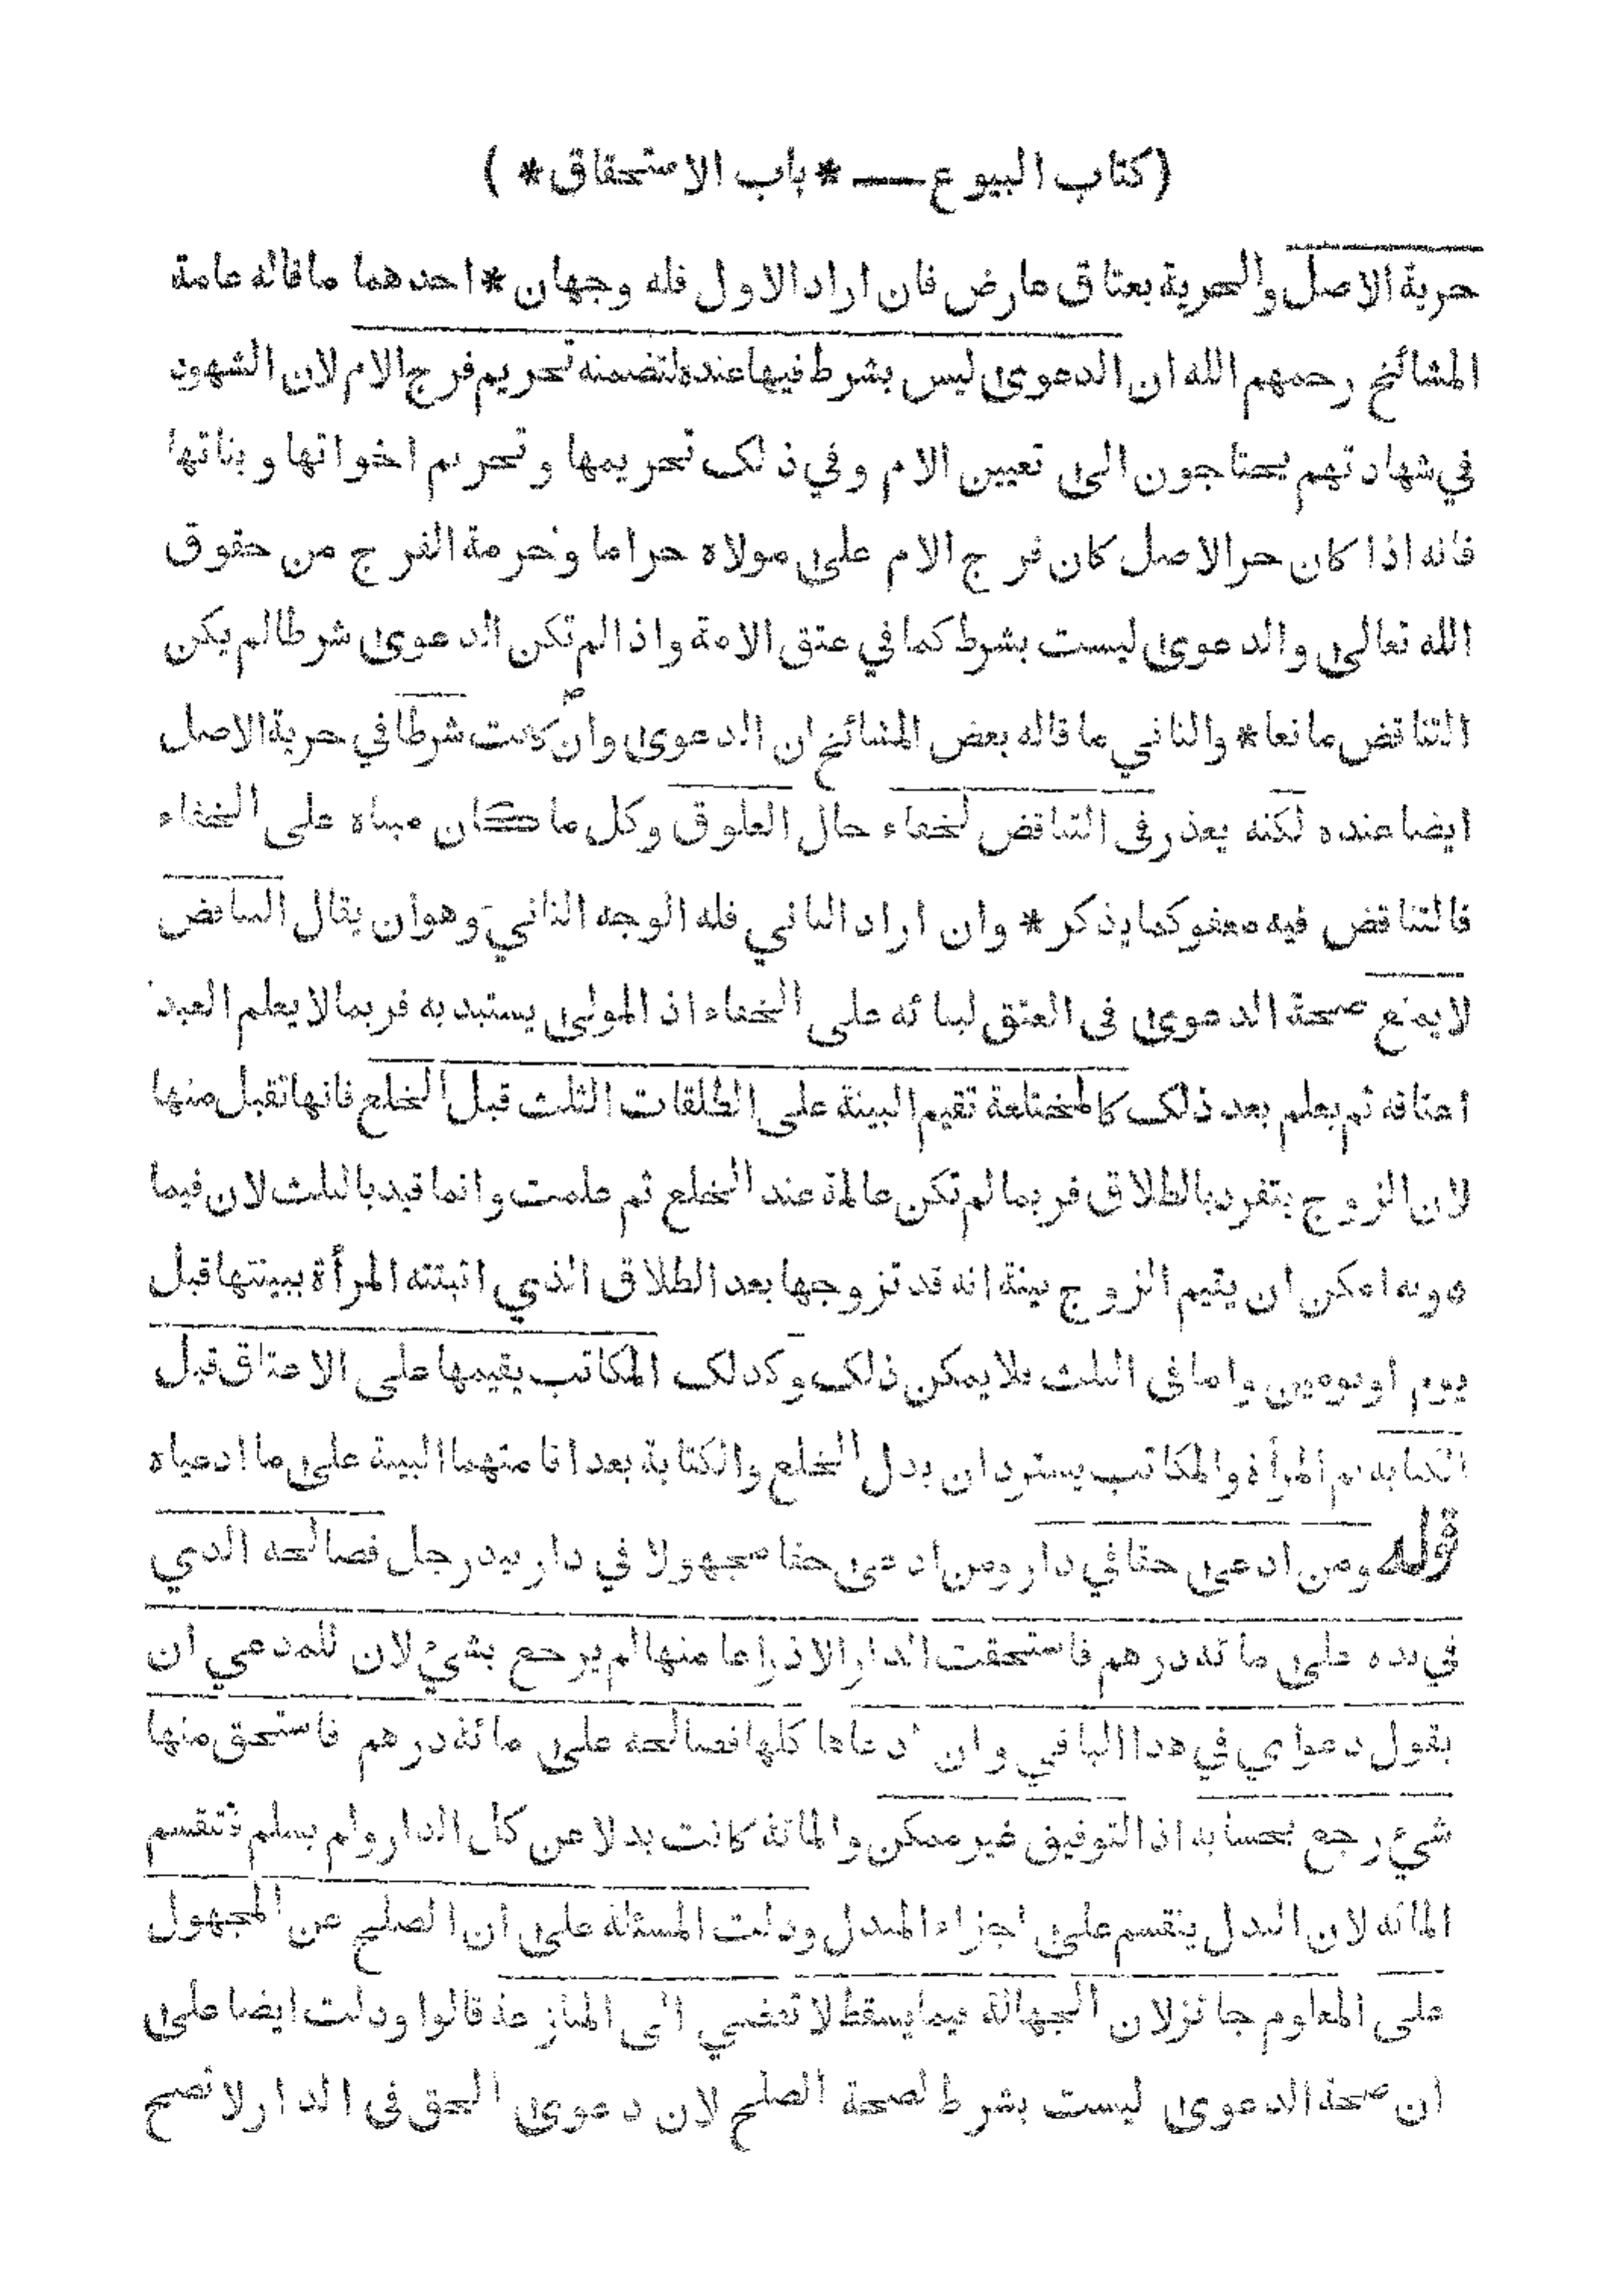 (كتاب البيوع — *باب الاستحقاق* )
حرية الاصل والحرية بعتاق عارض فان اراد الاول فله وجهان * احدهما ما قاله عامة
المشائخ رحمهم الله ان الدعوى ليس بشرط فيها عنده لتضمنه تحريم فرج الام لان الشهود
في شهادتهم يحتاجون الى تعيين الام وفي ذلك تحريمها وتحريم اخواتها وبناتها
فانه اذا كان حر الاصل كان فرج الام على مولاه حراما وحرمة الفرج من حقوق
الله تعالى والدعوى ليست بشرط كما في عتق الامة واذا لم تكن الدعوى شرطا لم يكن
التناقض مانعا * والثاني ما قاله بعض المشائخ ان الدعوى وان كانت شرطا في حرية الاصل
ايضا عنده لكنه يعذر في التناقض لخفاء حال العلوق وكل ما كان مبناه على الخفاء
فالتناقض فيه معفو كما يذكر * وان اراد الثاني فله الوجه الثاني وهو ان يقال التناقض
لا يمنع صحة الدعوى في العتق لبنائه على الخفاء اذ المولى يستبد به فربما لا يعلم العبد
اعتاقه ثم يعلم بعد ذلك كالمختلعة تقيم البينة على الطلقات الثلث قبل الخلع فانها تقبل منها
لان الزوج يتفرد بالطلاق فربما لم تكن عالمة عند الخلع ثم علمت وانما قيد بالثلث لان فيما
دونه امكن ان يقيم الزوج بينة انه قد تزوجها بعد الطلاق الذي اثبتته المرأة ببينتها قبل
يوم او يومين واما في الثلث فلا يمكن ذلك وكذلك المكاتب يقيمها على الاعتاق قبل
الكتابة ثم المرأة والمكاتب يستردان بدل الخلع والكتابة بعد اقامتهما البينة على ما ادعياه
قوله ومن ادعى حقا في دار ومن ادعى حقا مجهولا في دار بيد رجل فصالحه الذي
في يده على مائة درهم فاستحقت الدار الا ذراعا منها لم يرجع بشيئ لان للمدعي ان
يقول دعواي في هذا الباقي وان ادعاها كلها فصالحه على مائة درهم فاستحق منها
شيء رجع بحسابه اذ التوفيق غير ممكن والمائة كانت بدلا عن كل الدار ولم يسلم فتنقسم
المائة لان البدل ينقسم على اجزاء المبدل ودلت المسئلة على ان الصلح عن المجهول
على المعلوم جائز لان الجهالة فيما يسقط لا تفضي الى المنازعة قالوا ودلت ايضا على
ان صحة الدعوى ليست بشرط لصحة الصلح لان دعوى الحق في الدار لا تصح